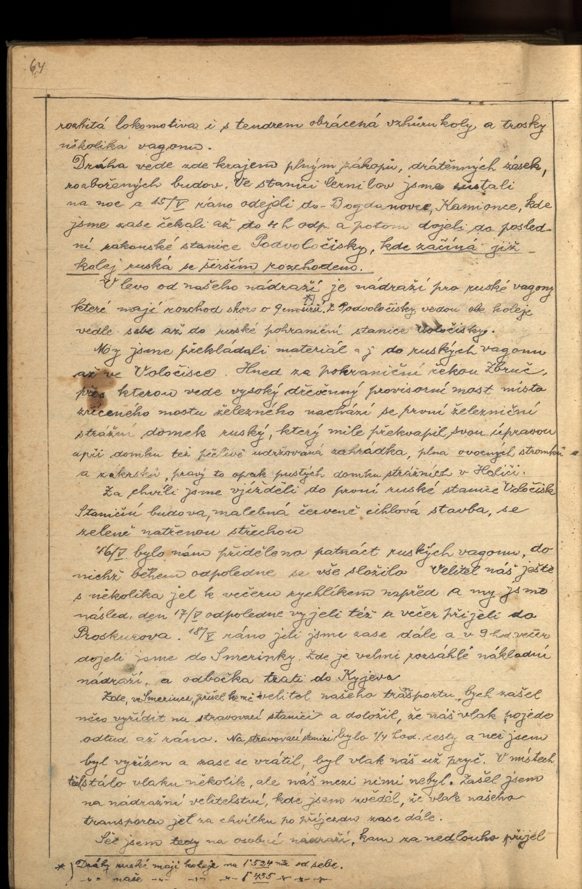 64
rozbitá lokomotiva i s tendrem obrácená vzhůru koly a trosky
několika vagonů.
Dráha vede zde krajem plným zákopů, drátěnných zásek,
rozbořených budov. Ve stanici Černilov jsme zůstali
na noc a 15/V ráno odejeli do Bogdanovce, Kamionce, kde
jsme zase čekali až do 4 h odp. a potom dojeli do posled-
ní rakouské stanice Podvoločisky, kde začíná již
kolej ruská se širším rozchodem.
V levo od našeho nádraží je nádraží pro ruské vagony
které mají rozchod skoro o 9 cm širší, z Podvoločisky vedou obě koleje
vedle sebe až do ruské pohraniční stanice Voločisky.
My jsme překládali materiál do ruských vagonů
až ve Voločisce. Hned za pohraniční řekou Zbruč,
přes kterou vede vysoký dřevěnný provisorní most místo
zříceného mostu železného nachází se první železniční
strážní domek ruský, který mile překvapil svou úpravou
při domku též pečlivě udržovaná zahrádka, plná ovocných stromků
a zákrsků, pravý to opak pustých domků strážních v Haliči.
Za chvíli jsme vjížděli do první ruské stanice Voločisk
Staniční budova, malebná červeně cihlová stavba, se
zeleně natřenou střechou
16/V bylo nám přiděleno patnáct ruských vagonů, do
nichž během odpoledne se vše složilo. Velitel náš ještě
s několika jel k večeru rychlíkem napřed a my jsme
násled. den 17/V odpoledne vyjeli též a večer přijeli do
Proskurova. 18/V ráno jeli jsme zase dále a v 9 hod večer
dojeli jsme do Smerinky. Zde je velmi rozsáhlé nákladní
nádraží, a odbočka trati do Kyjeva
Zde, v Smerince, přišel ke mě velitel našeho transportu, bych našel
něco vyřídit na stravovací stanici a doložil, že náš vlak pojede
odtud až ráno. Na stravovací stanici bylo 1/4 hod. cesty a než jsem
byl vyřízen a zase se vrátil, byl vlak náš už pryč. V místech
těch stálo vlaků několik, ale náš mezi nimi nebyl. Zašel jsem
na nádražní velitelství, kde jsem zvěděl, že vlak našeho
transportu jel za chvilku po příjezdu zase dále.
Šel jsem tedy na osobní nádraží, kam za nedlouho přijel
*) Dráhy ruské mají koleje na 1·524 m od sebe.
" naše " " 1·435 " " "